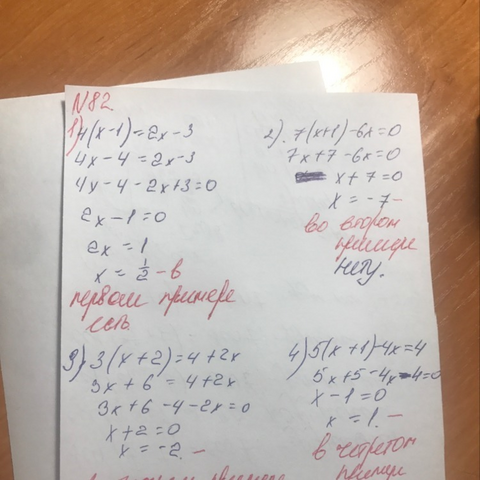 N82
1) 4(x-1)=2x-3
4x-4=2x-3
4x-4-2x+3=0
2x-1=0
2x=1
x=1/2-в
первом примере
есть
2). 7(x+1)-6x=0
7x+7-6x=0
x+7=0
x=-7-
во втором
примере
нету.
3) 3(x+2)=4+2x
3x+6=4+2x
3x+6-4-2x=0
x+2=0
x=-2.-
примере
4) 5(x+1)-4x=4
5x+5-4x-4=0
x-1=0
x=1.-
в четретом
примере